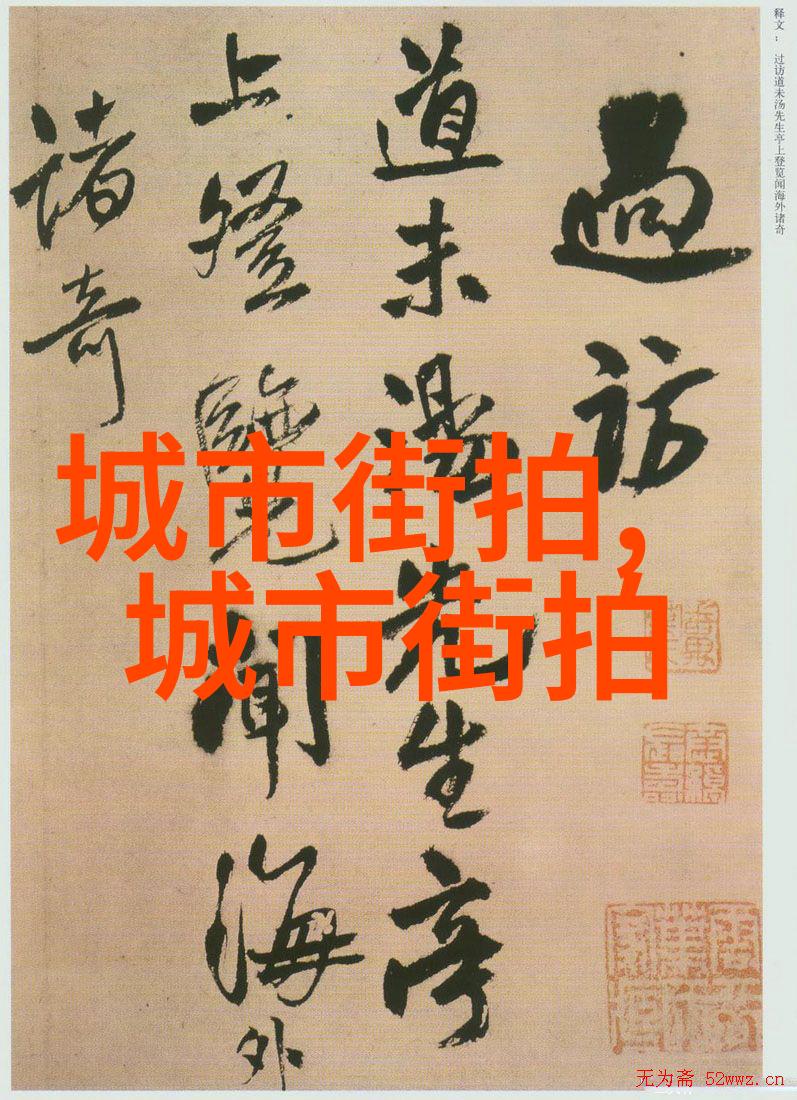 释文： 过访道未汤先生亭上登览闻海外诸奇
過訪
道未湯先生亭
上登覽聞海外
諸奇
城市街拍,
城市街拍
无为斋 52wwz.cn